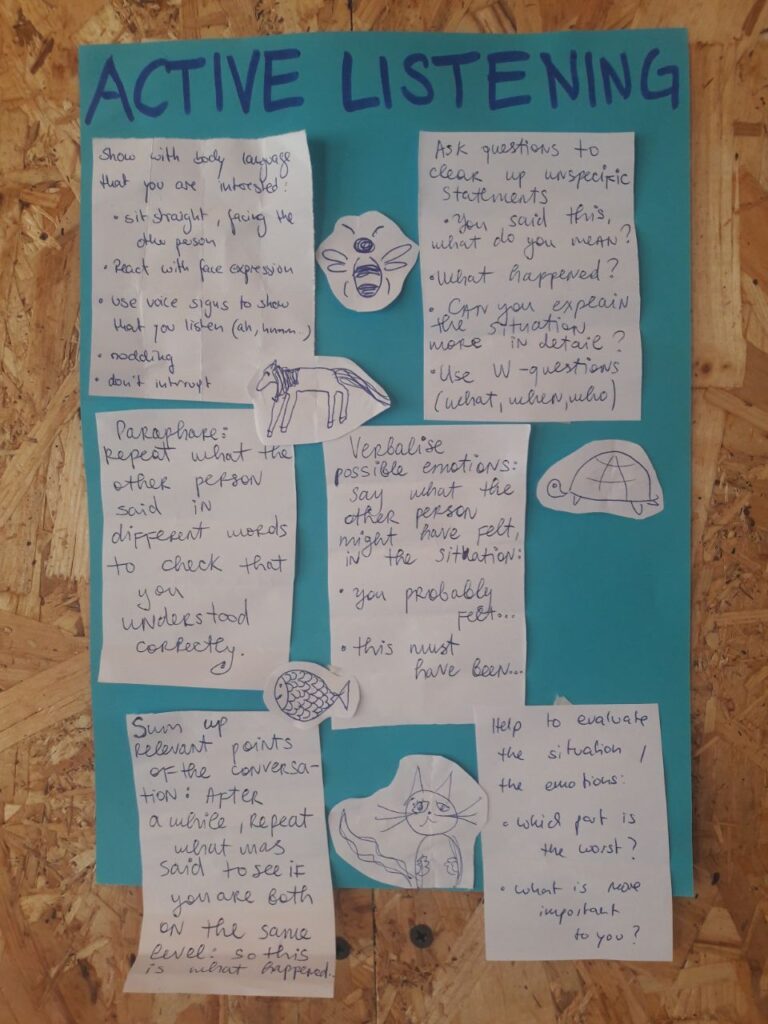 ACTIVE LISTENING
Show with body language
that you are interested:
• sit straight, facing the
other person
• React with face expression
• use voice signs to show
that you listen (ah, humm..)
• nodding
• don't interrupt
Ask questions to
clear up unspecific
statements
• You said this,
what do you mean?
• What happened?
• CAN you explain
the situation
more in detail?
• Use W-questions
(what, when, who)
Paraphare:
Repeat what the
other person
said in
different words
to check that
you
understood
correctly.
Verbalise
possible emotions:
say what the
other person
might have felt,
in the situation:
• you probably
felt...
• this must
have been...
Sum up
relevant points
of the conversa-
tion: After
a while, repeat
what was
said to see if
you are both
on the same
level: so this
is what happened..
Help to evaluate
the situation /
the emotions:
• which part is
the worst?
• what is more
important
to you?